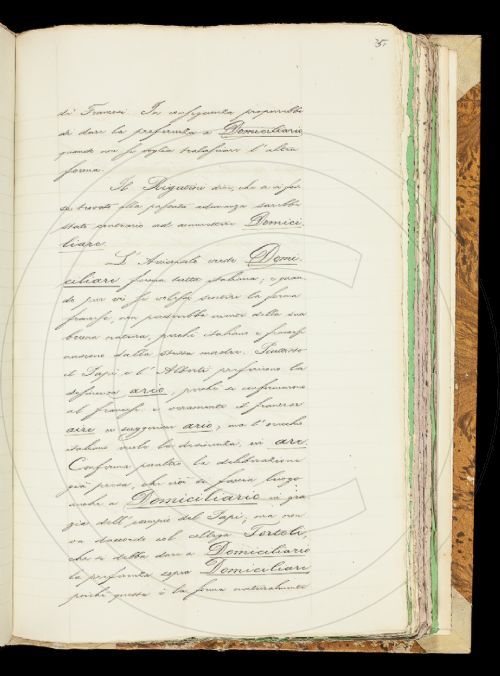 35.
di Francesi. In conseguenza proporrebbe
di dare la preferenza a Domiciliario
quando non si voglia tralasciare l'altra
forma.
Il Rigutini dice, che se si fos-
se trovato alla passata adunanza sarebbe
stato contrario ad ammettere Domici-
liare.
L'Arcangeli crede Domi-
ciliare forma tutta italiana; e quan-
do pur vi si volesse sentire la forma
francese, non perderebbe nulla della sua
buona natura, perchè italiano e francese
nascono dalla stessa madre. Soltanto
il Papi e l'Alberti preferirono la
desinenza ario, perchè si conformarono
al francese: e veramente il francese
aire ci suggerisce ario; ma l'orecchio
italiano vuole la desinenza in are.
Conferma peraltro la deliberazione
già presa, che cioè si faccia luogo
anche a Domiciliario in gra-
zia dell'esempio del Papi; ma non
va d'accordo col collega Tortoli,
che si debba dare a Domiciliario
la preferenza sopra Domiciliare
poichè questa è la forma naturalmente